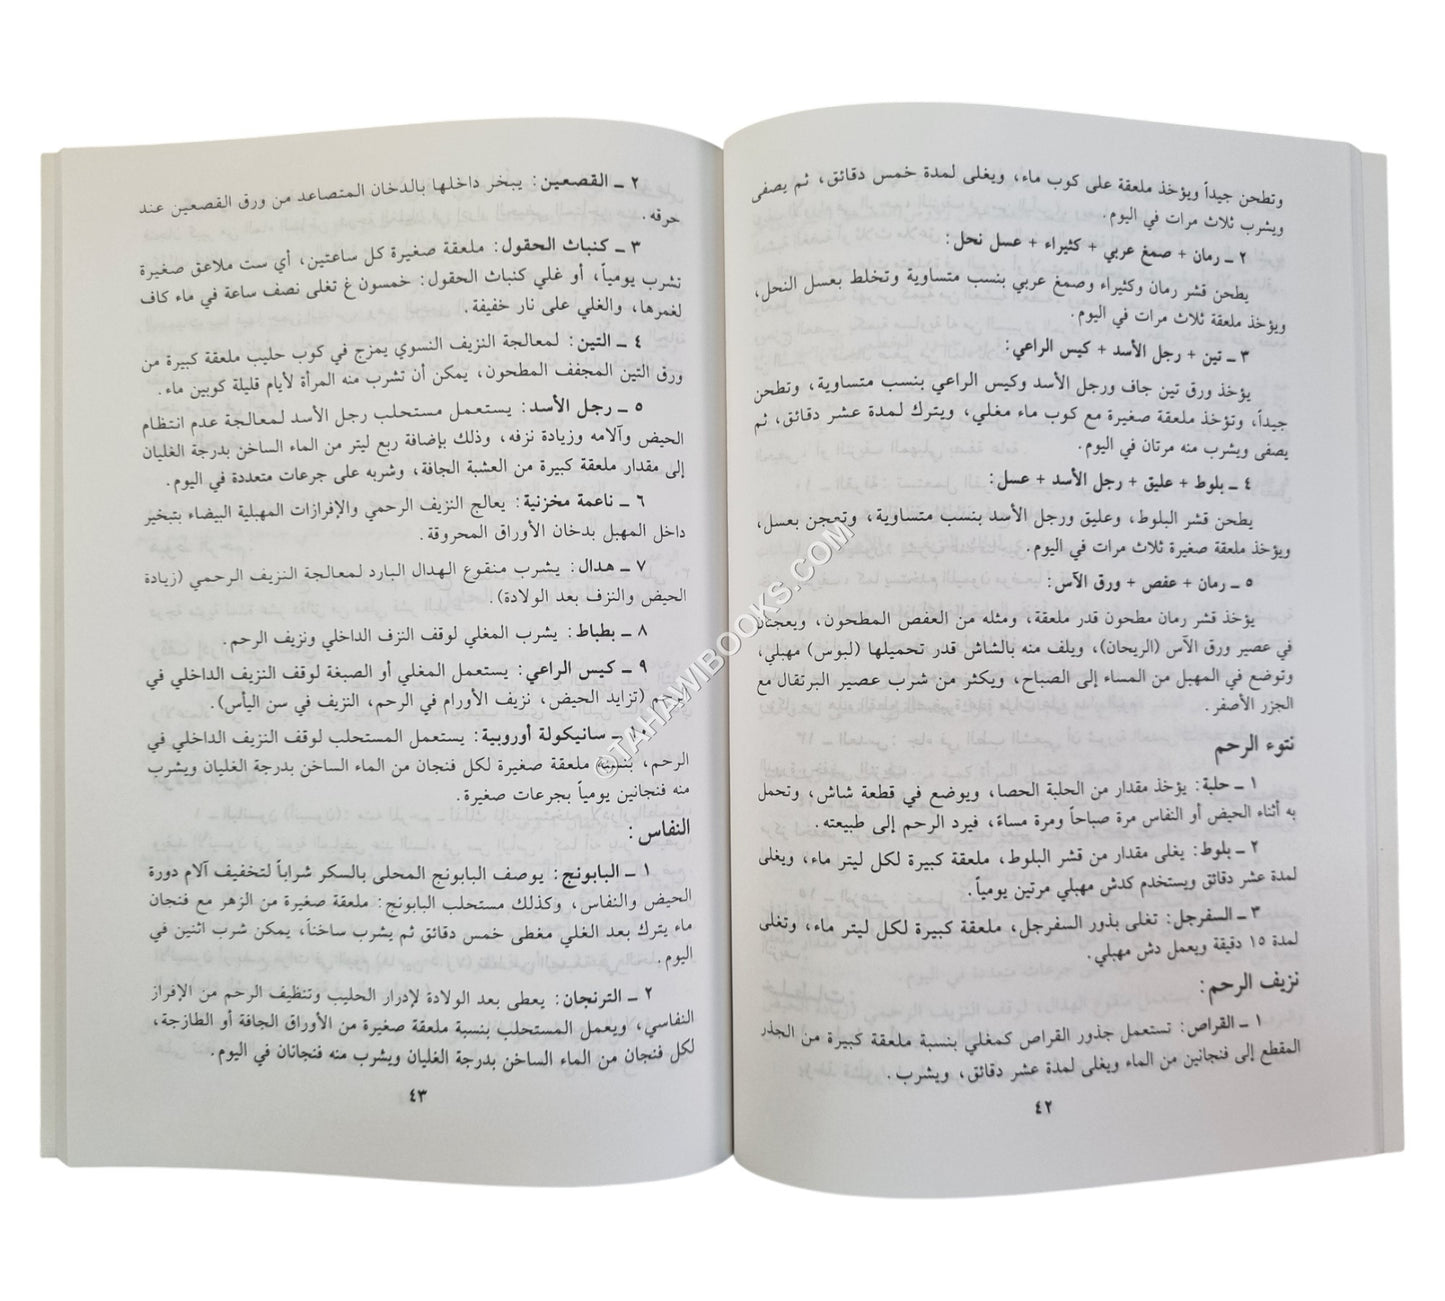 وتطحن جيداً ويؤخذ ملعقة على كوب ماء، ويغلى لمدة خمس دقائق، ثم يصفى
ويشرب ثلاث مرات في اليوم.
٢ ـ رمان + صمغ عربي + كثيراء + عسل نحل:
يطحن قشر رمان وكثيراء وصمغ عربي بنسب متساوية وتخلط بعسل النحل،
ويؤخذ ملعقة ثلاث مرات في اليوم.
٣ ـ تين + رجل الأسد + كيس الراعي:
يؤخذ ورق تين جاف ورجل الأسد وكيس الراعي بنسب متساوية، وتطحن
جيداً، وتؤخذ ملعقة صغيرة مع كوب ماء مغلي، ويترك لمدة عشر دقائق، ثم
يصفى ويشرب منه مرتان في اليوم.
٤ ـ بلوط + عليق + رجل الأسد + عسل:
يطحن قشر البلوط، وعليق ورجل الأسد بنسب متساوية، وتعجن بعسل،
ويؤخذ ملعقة صغيرة ثلاث مرات في اليوم.
٥ ـ رمان + عفص + ورق الآس:
يؤخذ قشر رمان مطحون قدر ملعقة، ومثله من العفص المطحون، ويعجنان
في عصير ورق الآس (الريحان)، ويلف منه بالشاش قدر تحميلها (لبوس) مهبلي،
وتوضع في المهبل من المساء إلى الصباح، ويكثر من شرب عصير البرتقال مع
الجزر الأصفر.
نتوء الرحم
١ ـ حلبة: يؤخذ مقدار من الحلبة الحصا، ويوضع في قطعة شاش، وتحمل
به أثناء الحيض أو النفاس مرة صباحاً ومرة مساءً، فيرد الرحم إلى طبيعته.
٢ ـ بلوط: يغلى مقدار من قشر البلوط، ملعقة كبيرة لكل ليتر ماء، ويغلى
لمدة عشر دقائق ويستخدم كدش مهبلي مرتين يومياً.
٣ ـ السفرجل: تغلى بذور السفرجل، ملعقة كبيرة لكل ليتر ماء، وتغلى
لمدة ١٥ دقيقة ويعمل دش مهبلي.
نزيف الرحم:
١ ـ القراص: تستعمل جذور القراص كمغلي بنسبة ملعقة كبيرة من الجذر
المقطع إلى فنجانين من الماء ويغلى لمدة عشر دقائق، ويشرب.
٤٢
٢ ـ القصعين: يبخر داخلها بالدخان المتصاعد من ورق القصعين عند
حرقه.
٣ ـ كنباث الحقول: ملعقة صغيرة كل ساعتين، أي ست ملاعق صغيرة
تشرب يومياً، أو غلي كنباث الحقول: خمسون غ تغلى نصف ساعة في ماء كاف
لغمرها، والغلي على نار خفيفة.
٤ ـ التين: لمعالجة النزيف النسوي يمزج في كوب حليب ملعقة كبيرة من
ورق التين المجفف المطحون، يمكن أن تشرب منه المرأة لأيام قليلة كوبين ماء.
٥ ـ رجل الأسد: يستعمل مستحلب رجل الأسد لمعالجة عدم انتظام
الحيض وآلامه وزيادة نزفه، وذلك بإضافة ربع ليتر من الماء الساخن بدرجة الغليان
إلى مقدار ملعقة كبيرة من العشبة الجافة، وشربه على جرعات متعددة في اليوم.
٦ ـ ناعمة مخزنية: يعالج النزيف الرحمي والإفرازات المهبلية البيضاء بتبخير
داخل المهبل بدخان الأوراق المحروقة.
٧ ـ هدال: يشرب منقوع الهدال البارد لمعالجة النزيف الرحمي (زيادة
الحيض والنزف بعد الولادة).
٨ ـ بطباط: يشرب المغلي لوقف النزف الداخلي ونزيف الرحم.
٩ ـ كيس الراعي: يستعمل المغلي أو الصبغة لوقف النزيف الداخلي في
الرحم (تزايد الحيض، نزيف الأورام في الرحم، النزيف في سن اليأس).
١٠ ـ سانيكولة أوروبية: يستعمل المستحلب لوقف النزيف الداخلي في
الرحم، بنسبة ملعقة صغيرة لكل فنجان من الماء الساخن بدرجة الغليان ويشرب
منه فنجانين يومياً بجرعات صغيرة.
النفاس:
١ ـ البابونج: يوصف البابونج المحلى بالسكر شراباً لتخفيف آلام دورة
الحيض والنفاس، وكذلك مستحلب البابونج: ملعقة صغيرة من الزهر مع فنجان
ماء يترك بعد الغلي مغطى خمس دقائق ثم يشرب ساخناً، يمكن شرب اثنين في
اليوم.
٢ ـ الترنجان: يعطى بعد الولادة لإدرار الحليب وتنظيف الرحم من الإفراز
النفاسي، ويعمل المستحلب بنسبة ملعقة صغيرة من الأوراق الجافة أو الطازجة،
لكل فنجان من الماء الساخن بدرجة الغليان ويشرب منه فنجانان في اليوم.
٤٣
©TAHAWIBOOKS.COM